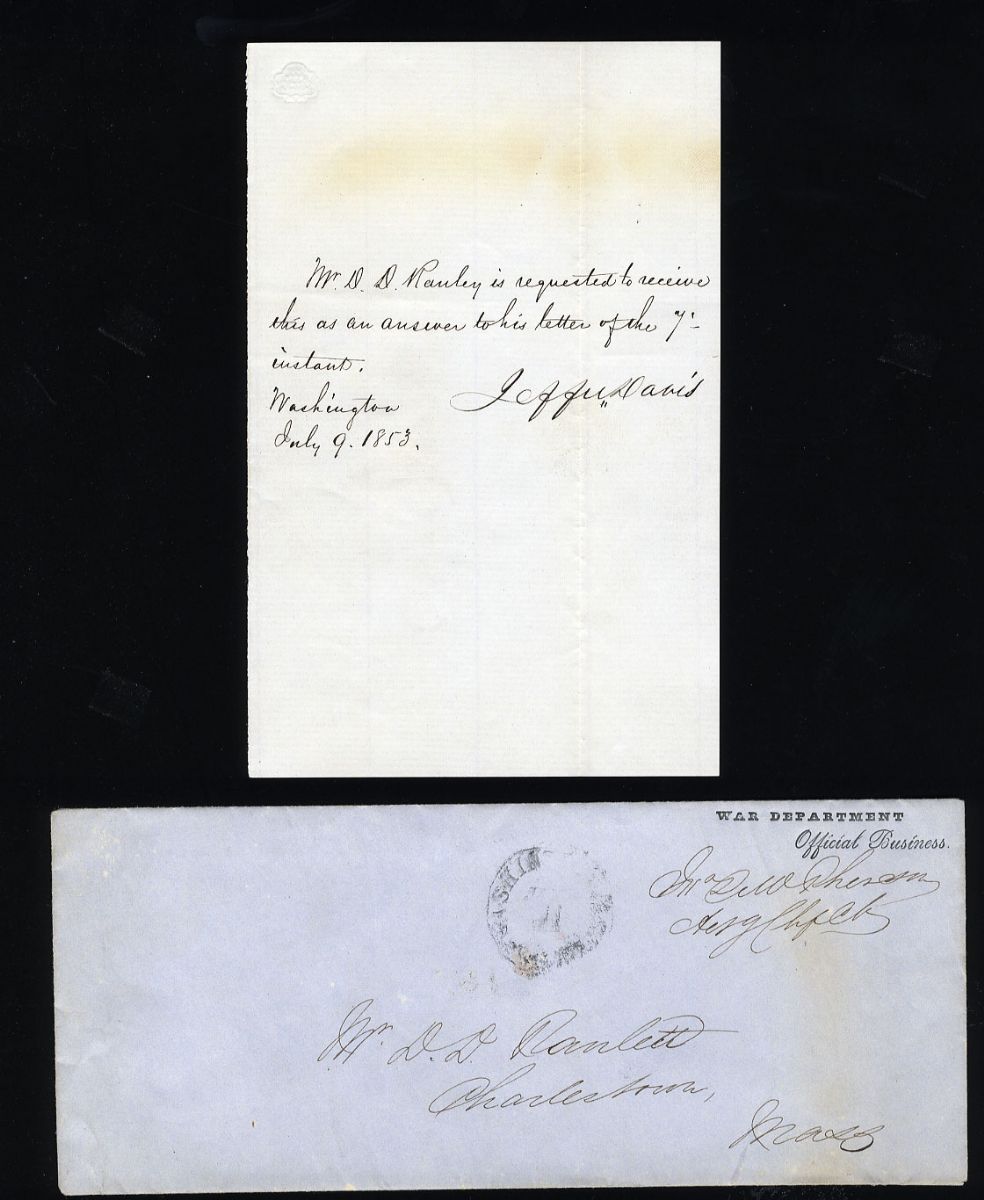 Mr. D. D. Ranley is requested to receive
this as an answer to his letter of the 7th
instant.
Jeffn Davis
Washington
July 9. 1853.
WAR DEPARTMENT
Official Business.
Actg Chf Clk
WASHIN
Mr. D. D. Ranlett
Charlestown,
Mass